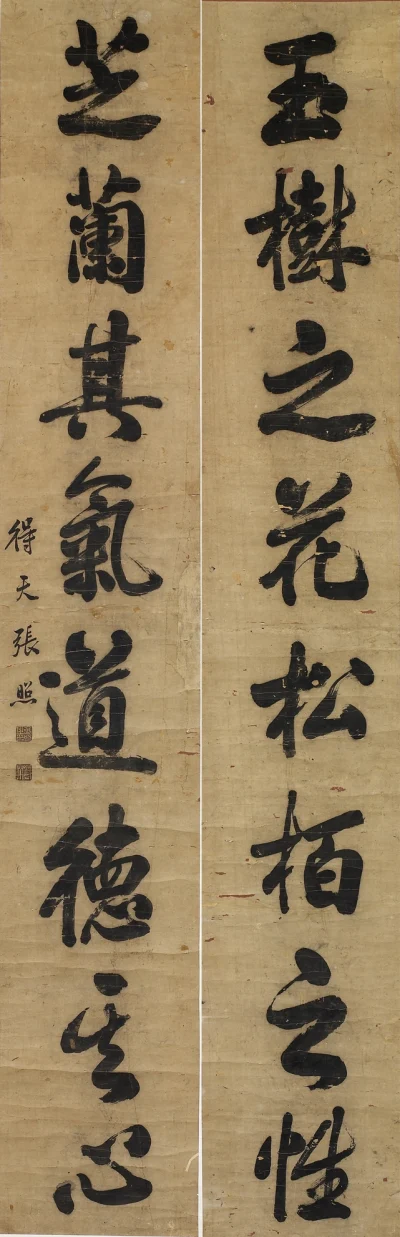 玉樹之花松柏之性
芝蘭其氣道德其心
得天張照